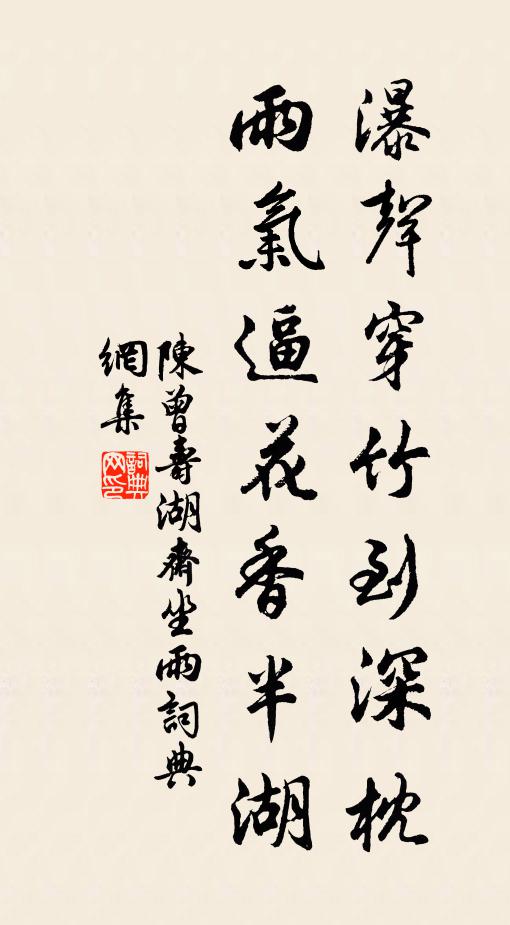 瀑聲穿竹到深枕
雨氣逼花香半湖
陳曾壽湖齋坐雨詞典
網集
詞典
网印